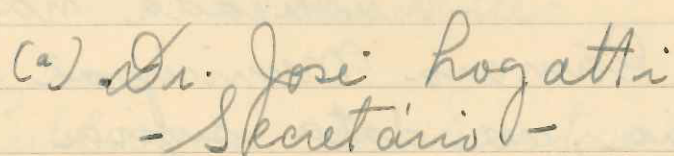 (a) Dr. José Logatti
- Secretário -